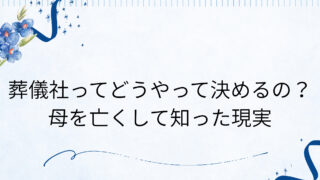 葬儀社ってどうやって決めるの？
母を亡くして知った現実